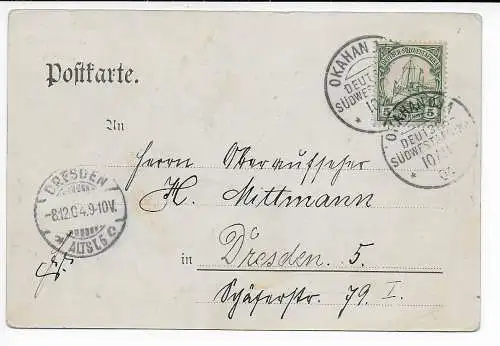 Postkarte.
OKAHANDJA
DEUTSCH
SÜDWESTAFRIKA
DEUTSCH-SÜDWESTAFRIKA
5 5
OKAHANDJA
DEUTSCH
SÜDWESTAFRIKA
An
Herrn Oberaufseher
H. Mittmann
DRESDEN
-8.12.04.9-10V.
* ALTST.5 c
in Dresden. 5.
Schäferstr. 79 I.